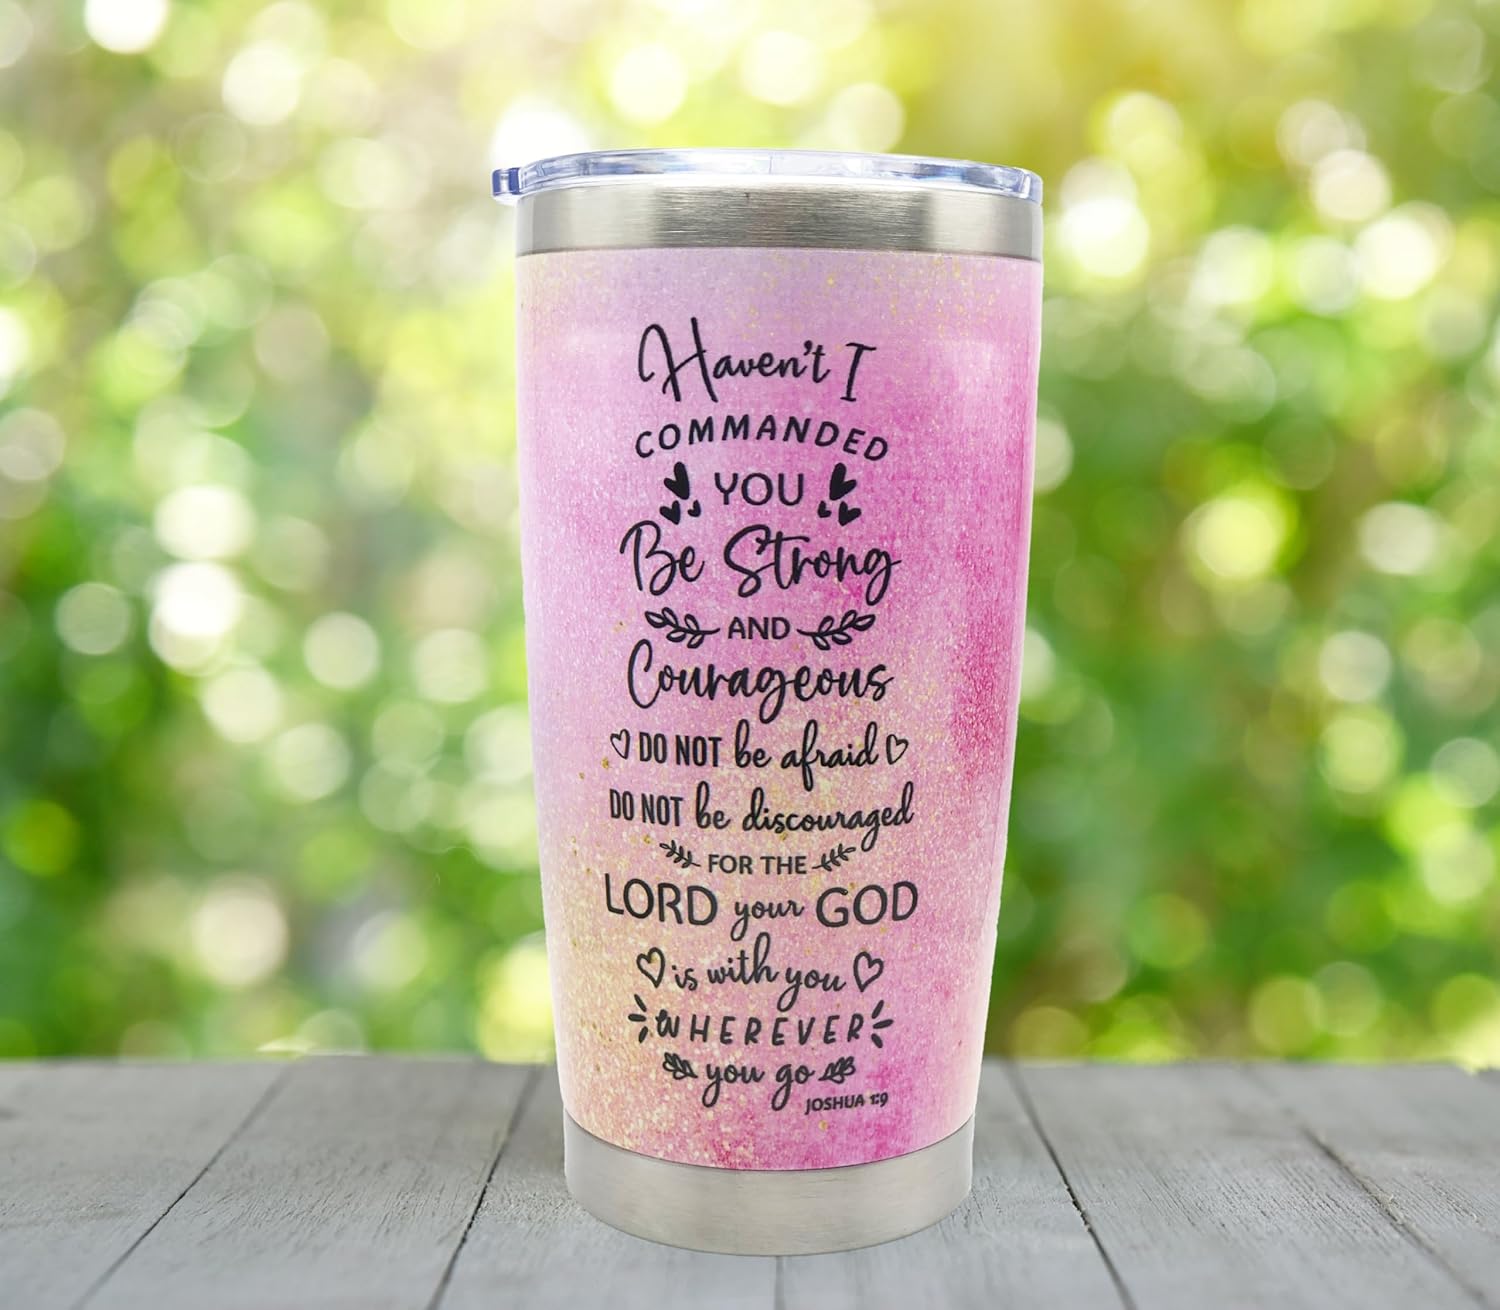 Haven't I
COMMANDED
YOU
Be Strong
AND
Courageous
DO NOT be afraid
DO NOT be discouraged
FOR THE
LORD your GOD
is with you
WHEREVER
you go
JOSHUA 1:9